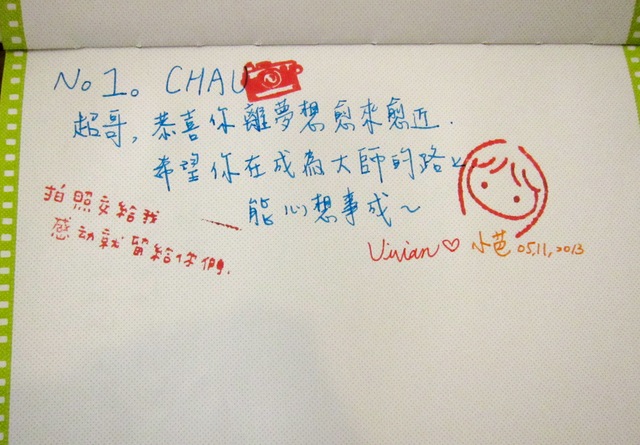 No 1。 CHAU
超哥，恭喜你離夢想愈來愈近．
希望你在成為大師的路上
能心想事成～
拍照交給我
感动就留給你們．
Vivian♡ 小芭 05,11,2013